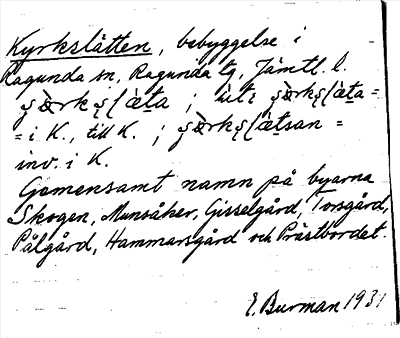 Kyrkslätten, bebyggelse i
Ragunda sn, Ragunda tg, Jämtl. l.
= i K., till K. ;
inv. i K.
Gemensamt namn på byarna
Skogen, Munsåker, Gisselgård, Torsgård,
Pålgård, Hammarsgård och Prästbordet.
E. Burman 1931